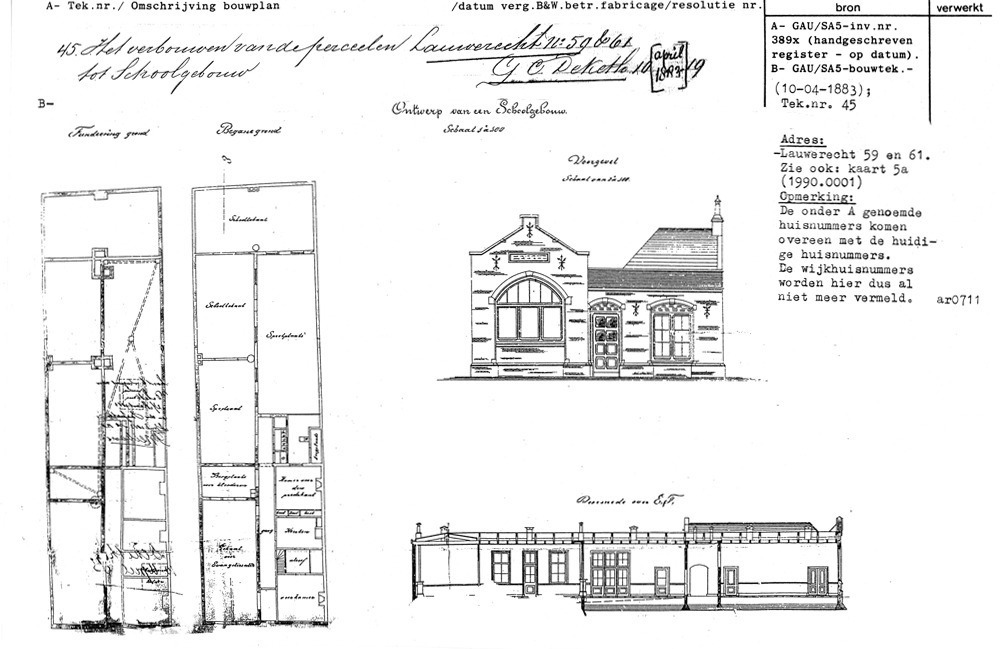 A- Tek.nr./ Omschrijving bouwplan /datum verg.B&W.betr.fabricage/resolutie nr.
bron
verwerkt
45. Het verbouwen van de perceelen Lauwerecht Nos 59 & 61
tot Schoolgebouw G C Deketh 10 april 1883 19
A- GAU/SA5-inv.nr.
389x (handgeschreven
register - op datum).
B- GAU/SA5-bouwtek.-
(10-04-1883);
Tek.nr. 45
Adres:
-Lauwerecht 59 en 61.
Zie ook: kaart 5a
(1990.0001)
Opmerking:
De onder A genoemde
huisnummers komen
overeen met de huidi-
ge huisnummers.
De wijkhuisnummers
worden hier dus al
niet meer vermeld. ar0711
B-
Fundeering grond
Begane grond
Ontwerp van een Schoolgebouw.
Schaal 1 à 100
Voorgevel
Schaal van 1 à 100.
Schoollokaal
Schoollokaal
Speelplaats
Speellokaal
Bergplaats
voor kinderen
Kamer voor
Keuken
gang
Lokaal
voor
Evangelisatie
alcoof
voorkamer
Doorsnede over E, F.